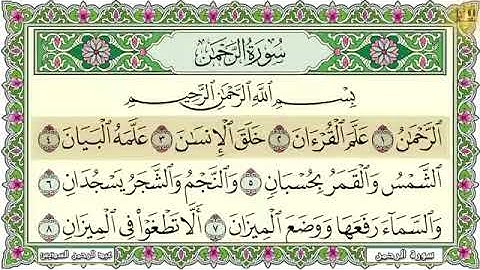 سُورَةُ الرَّحْمَٰن
بِسْمِ اللَّهِ الرَّحْمَٰنِ الرَّحِيمِ
الرَّحْمَٰنُ ١ عَلَّمَ الْقُرْءَانَ ٢ خَلَقَ الْإِنسَانَ ٣ عَلَّمَهُ الْبَيَانَ ٤
الشَّمْسُ وَالْقَمَرُ بِحُسْبَانٍ ٥ وَالنَّجْمُ وَالشَّجَرُ يَسْجُدَانِ ٦
وَالسَّمَاءَ رَفَعَهَا وَوَضَعَ الْمِيزَانَ ٧ أَلَّا تَطْغَوْا فِي الْمِيزَانِ ٨
سورة الرحمن
عبد الرحمن السويس